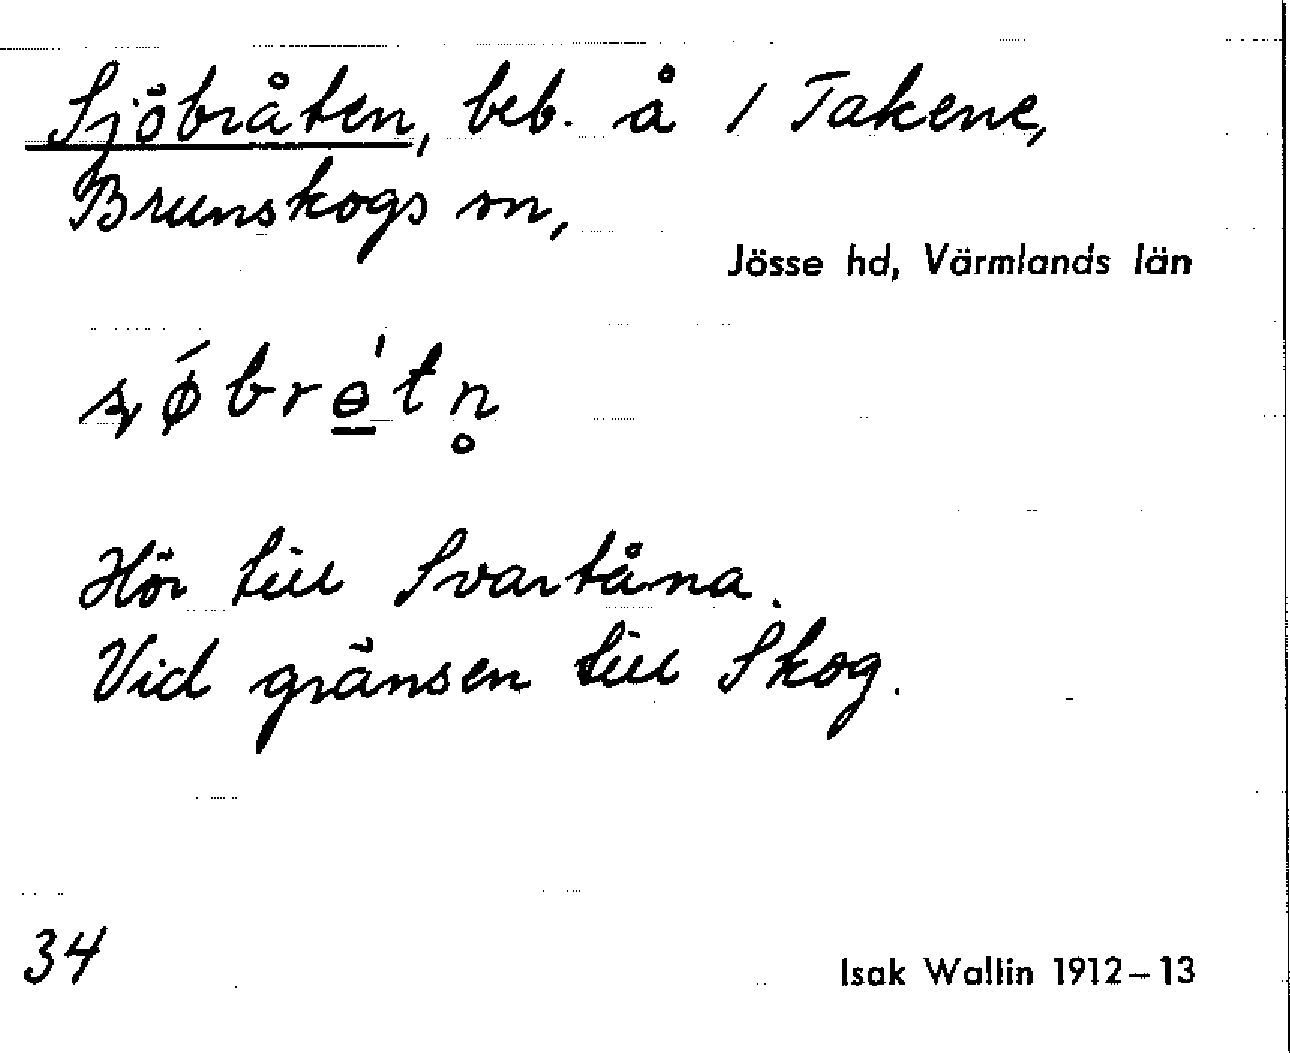 Sjöbråten, beb. å 1 Takene,
Brunskogs sn,
Jösse hd, Värmlands län
Hör till Svartåna.
Vid gränsen till Skog.
34
Isak Wallin 1912–13